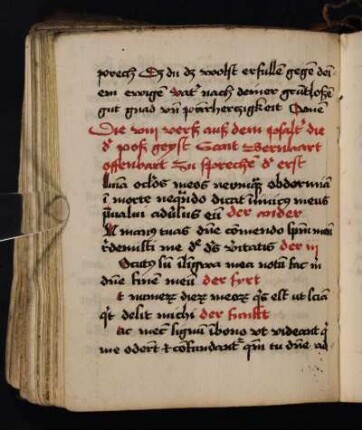 sprech Dz du dz wolst erfullen gegen dei
em ewigen vat' nach deiner grūtlosen
gut gnad vn parmherczigkeit Amen
Die viij verß auß dem psalt' die
d' poß geyst Sant Bernhart
offenbart zu sprechen d' erst
lumīa oclos meos neumq̄ obdormiā
ī morte neqn̄do dicat īimicus meus
pualui aduūs eū der ander
N manus tuas dn̄e comendo spm̄ meū
redemisti me d' ds v'itatis der iij
Ocutus sū ī ligwa mea notū fac m'
dn̄e finē meū der fyrt
t numerū dierū meorū qs est ut sciā
qd desit michi der funfft
ac mec signum ī bono vt videant q'
me oderūt et cōfundant' qm̄ tu dn̄e ad